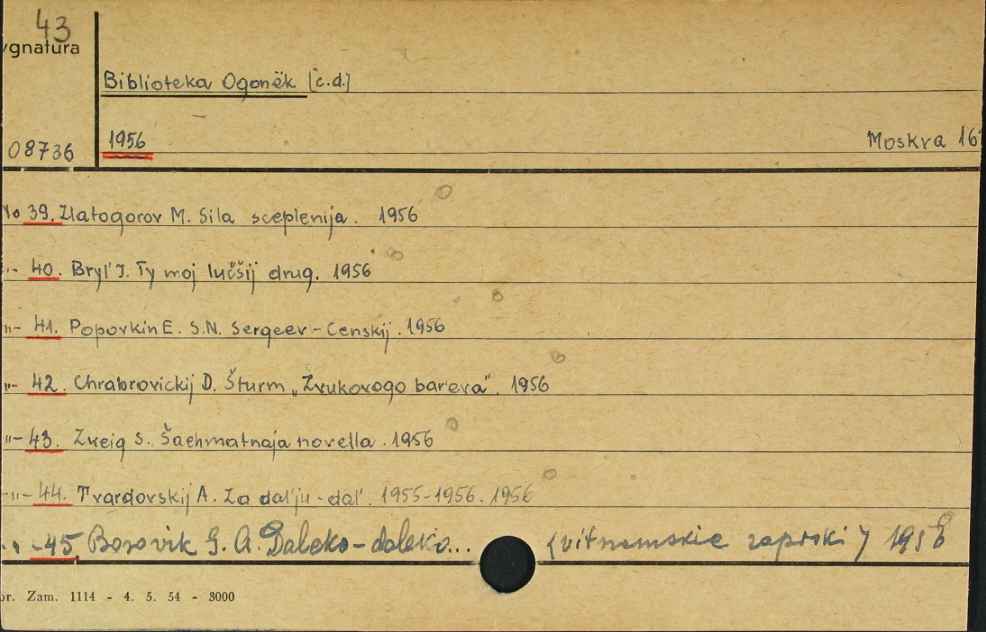 43
ygnatura
Biblioteka Ogonëk [c.d.]
08736 1956 Moskva 16°
No 39. Zlatogorov M. Sila sceplenija. 1956
-"- 40. Bryl' J. Ty moj lučšij drug. 1956
-"- 41. Popovkin E. S.N. Sergeev-Censkij. 1956
-"- 42. Chrabrovickij D. Šturm „Zvukovogo barera". 1956
-"- 43. Zweig S. Šachmatnaja novella. 1956
-"- 44. Tvardovskij A. Za dal'ju - dal'. 1955-1956. 1956
-"- 45. Borovik G. A. Daleko-daleko... (v'etnamskie zapiski) 1956
or. Zam. 1114 - 4. 5. 54 - 3000